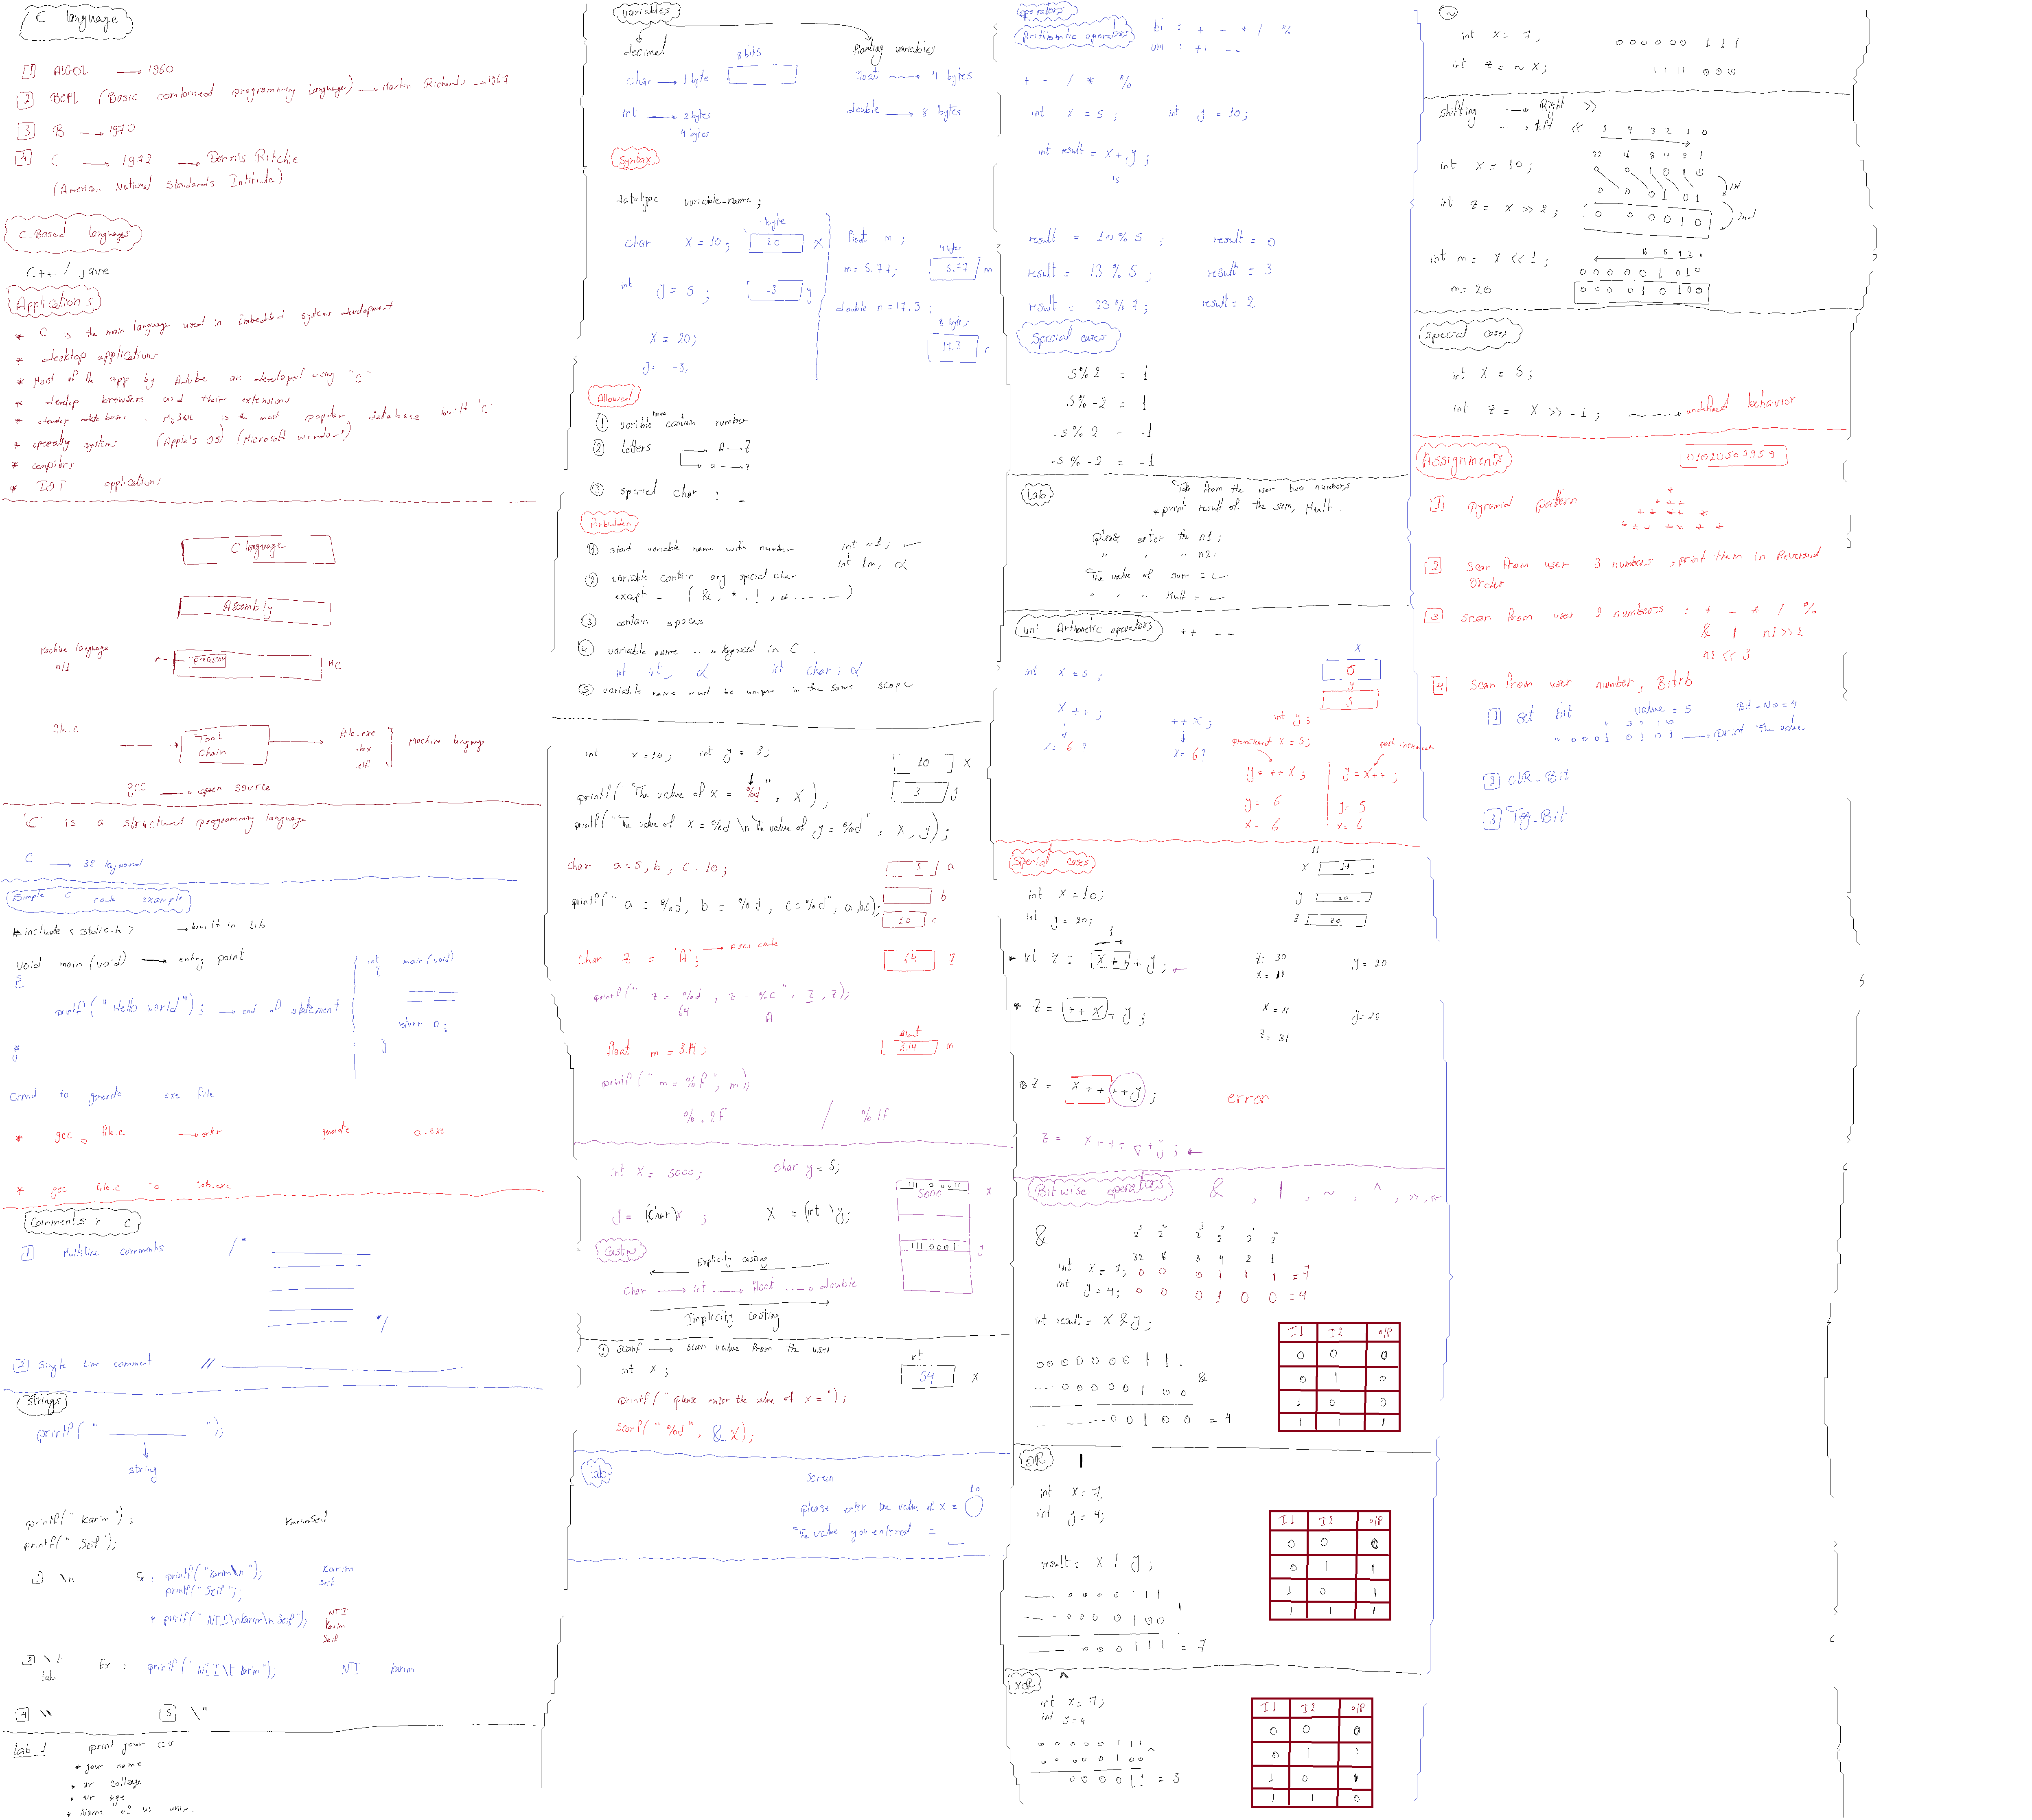 C language
1 ALGOL → 1960
2 BCPL (Basic combined programming language) → Martin Richards → 1967
3 B → 1970
4 C → 1972 → Dennis Ritchie
(American National Standards Intitute)
C-Based languages
C++ / jave
Applications
* C is the main language used in Embedded systems development.
* desktop applications
* Most of the app by Adobe are developed using "C"
* develop browsers and their extensions
* develop data bases . MySQL is the most popular database built 'C'
* operating systems (Apple's OS). (Microsoft windows)
* compilers
* IOT applications
C language
Assembly
Machine language
0/1
processor
MC
file.c → Tool Chain → file.exe
.hex
.elf
Machine language
gcc → open source
'C' is a structured programming language.
C → 32 keyword
Simple C code example
#include <stdio.h> → built in Lib
void main (void) → entry point
{
printf("Hello world"); → end of statement
}
int main (void)
{
return 0;
}
cmnd to generate exe file
* gcc file.c → enter generate a.exe
* gcc file.c -o lab.exe
Comments in C
1 Multiline comments /*
*/
2 Single line comment //
Strings
printf(" ");
string
printf("Karim"); KarimSeif
printf("Seif");
1 \n Ex: printf("Karim\n"); Karim
printf("Seif"); Seif
* printf("NTI\nKarim\nSeif"); NTI
Karim
Seif
3 \t Ex: printf("NTI\t Karim"); NTI Karim
tab
4 \\ 5 \"
Lab 1 print your CV
* your name
* ur college
* ur age
* Name of ur univ.
variables
decimal floating variables
8 bits
char → 1 byte float → 4 bytes
int → 2 bytes double → 8 bytes
4 bytes
Syntax
datatype variable_name;
1 byte
char x = 10; 20 x
int y = 5; -3 y
x = 20;
y = -3;
float m;
4 bytes
m = 5.77; 5.77 m
double n = 17.3;
8 bytes
17.3 n
Allowed
1 varible name contain number
2 letters → A → Z
→ a → z
3 special char : _
Forbidden
1 start variable name with number int m1; ✓
int 1m; α
2 variable contain any special char
except _ ( & , * , ! , # .. )
3 contain spaces
4 variable name → keyword in C .
int int; α int char; α
5 variable name must be unique in the same scope
int x = 10; int y = 3;
10 x
printf("The value of x = %d", x); 3 y
printf("The value of x = %d \n The value of y = %d", x, y);
char a = 5, b, c = 10; 5 a
b
printf(" a = %d, b = %d, c = %d", a,b,c); 10 c
char z = 'A'; → Ascii code 64 z
printf(" z = %d , z = %c", z, z);
64 A
float m = 3.14; float
3.14 m
printf(" m = %f", m);
%.2f / %lf
int x = 5000; char y = 5;
y = (char)x; x = (int)y;
111 0 0011
5000 x
111 00011 y
Casting
Explicity casting
char → int → float → double
Implicity casting
1 scanf → scan value from the user
int x; int
54 x
printf("please enter the value of x = ");
scanf("%d", &x);
lab
screen
please enter the value of x = 10
The value you entered =
operators
Arithmetic operators bi : + - * / %
uni : ++ --
+ - / * %
int x = 5; int y = 10;
int result = x + y;
15
result = 10 % 5; result = 0
result = 13 % 5; result = 3
result = 23 % 7; result = 2
Special cases
5 % 2 = 1
5 % -2 = 1
-5 % 2 = -1
-5 % -2 = -1
lab
Take from the user two numbers
* print result of the sum, Mult.
please enter the n1:
" " " n2:
The value of sum = ✓
" " " Mult = ✓
uni Arthmetic operators ++ --
x
5
y
5
int x = 5;
x++; ++x; int y;
x = 6? x = 6?
preincrement x = 5; post increment
y = ++x; y = x++;
y = 6 y = 5
x = 6 x = 6
Special cases
11
x 11
int x = 10; y 20
int y = 20; z 30
1
* int z = x++ + y; z: 30 y = 20
x = 11
* z = ++x + y; x = 11 y = 20
z = 31
* z = x++ ++y; error
z = x+++ +y;
Bitwise operators & , | , ~ , ^ , >> , <<
& 2^5 2^4 2^3 2^2 2^1 2^0
32 16 8 4 2 1
int x = 7; 0 0 0 1 1 1 = 7
int y = 4; 0 0 0 1 0 0 = 4
int result = x & y;
0 0 0 0 0 0 0 1 1 1
&
.... 0 0 0 0 0 1 0 0
........ 0 0 1 0 0 = 4
I1 I2 o/p
0 0 0
0 1 0
1 0 0
1 1 1
OR |
int x = 7,
int y = 4;
result = x | y;
0 0 0 0 1 1 1
|
0 0 0 0 1 0 0
0 0 0 1 1 1 = 7
I1 I2 o/p
0 0 0
0 1 1
1 0 1
1 1 1
XOR ^
int x = 7;
int y = 4
0 0 0 0 0 1 1 1
^
0 0 0 0 0 1 0 0
0 0 0 0 1 1 = 3
I1 I2 o/p
0 0 0
0 1 1
1 0 1
1 1 0
~
int x = 7; 0 0 0 0 0 0 1 1 1
int z = ~x; 1 1 1 1 0 0 0
shifting → Right >>
→ left << 5 4 3 2 1 0
32 16 8 4 2 1
int x = 10; 0 0 1 0 1 0
1st
0 0 0 1 0 1
int z = x >> 2; 2nd
0 0 0 0 1 0
int m = x << 1; 16 8 4 2 1
0 0 0 0 0 1 0 1 0
m = 20 0 0 0 0 1 0 1 0 0
special cases
int x = 5;
int z = x >> -1; → undefined behavior
Assignments 01020507959
1 pyramid pattern
2 scan from user 3 numbers , print them in Reversed
Order
3 scan from user 2 numbers : + - * / %
& | n1 >> 2
n2 << 3
4 scan from user number, Bitnb
1 set bit value = 5 Bit-No = 4
4 3 2 1 0
0 0 0 0 1 0 1 0 1 → print the value
2 clR_Bit
3 Tog_Bit